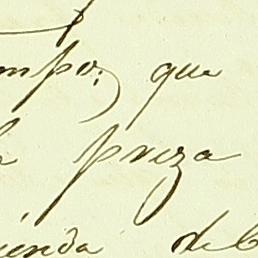 mpo; que
a preza
ienda deb